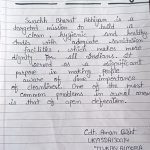 Swachh Bharat Abhiyan is a
targeted mission to build a
clean, hygienic and healthy
India with adequate sanitation
facilities, which makes more
dignity for all Indians. It
served as a significant
purpose in making people
aware of the importance
of cleanliness. One of the most
common problems in rural areas
is that of open defecation.
Cdt. Aman Bisht